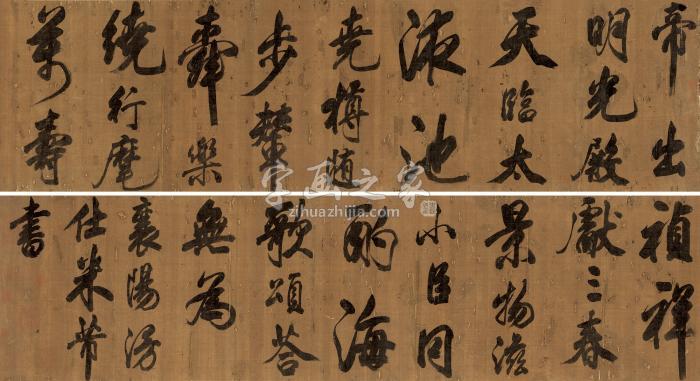 帝出
明光殿
天臨太
液池
堯樽隨
步輦
舜樂
繞行麾
萬壽
禎祥
獻三春
景物滋
小臣同
酌海
歌頌荅
無為
襄陽漫
仕米芾
書
字画之家
zihuazhijia.com